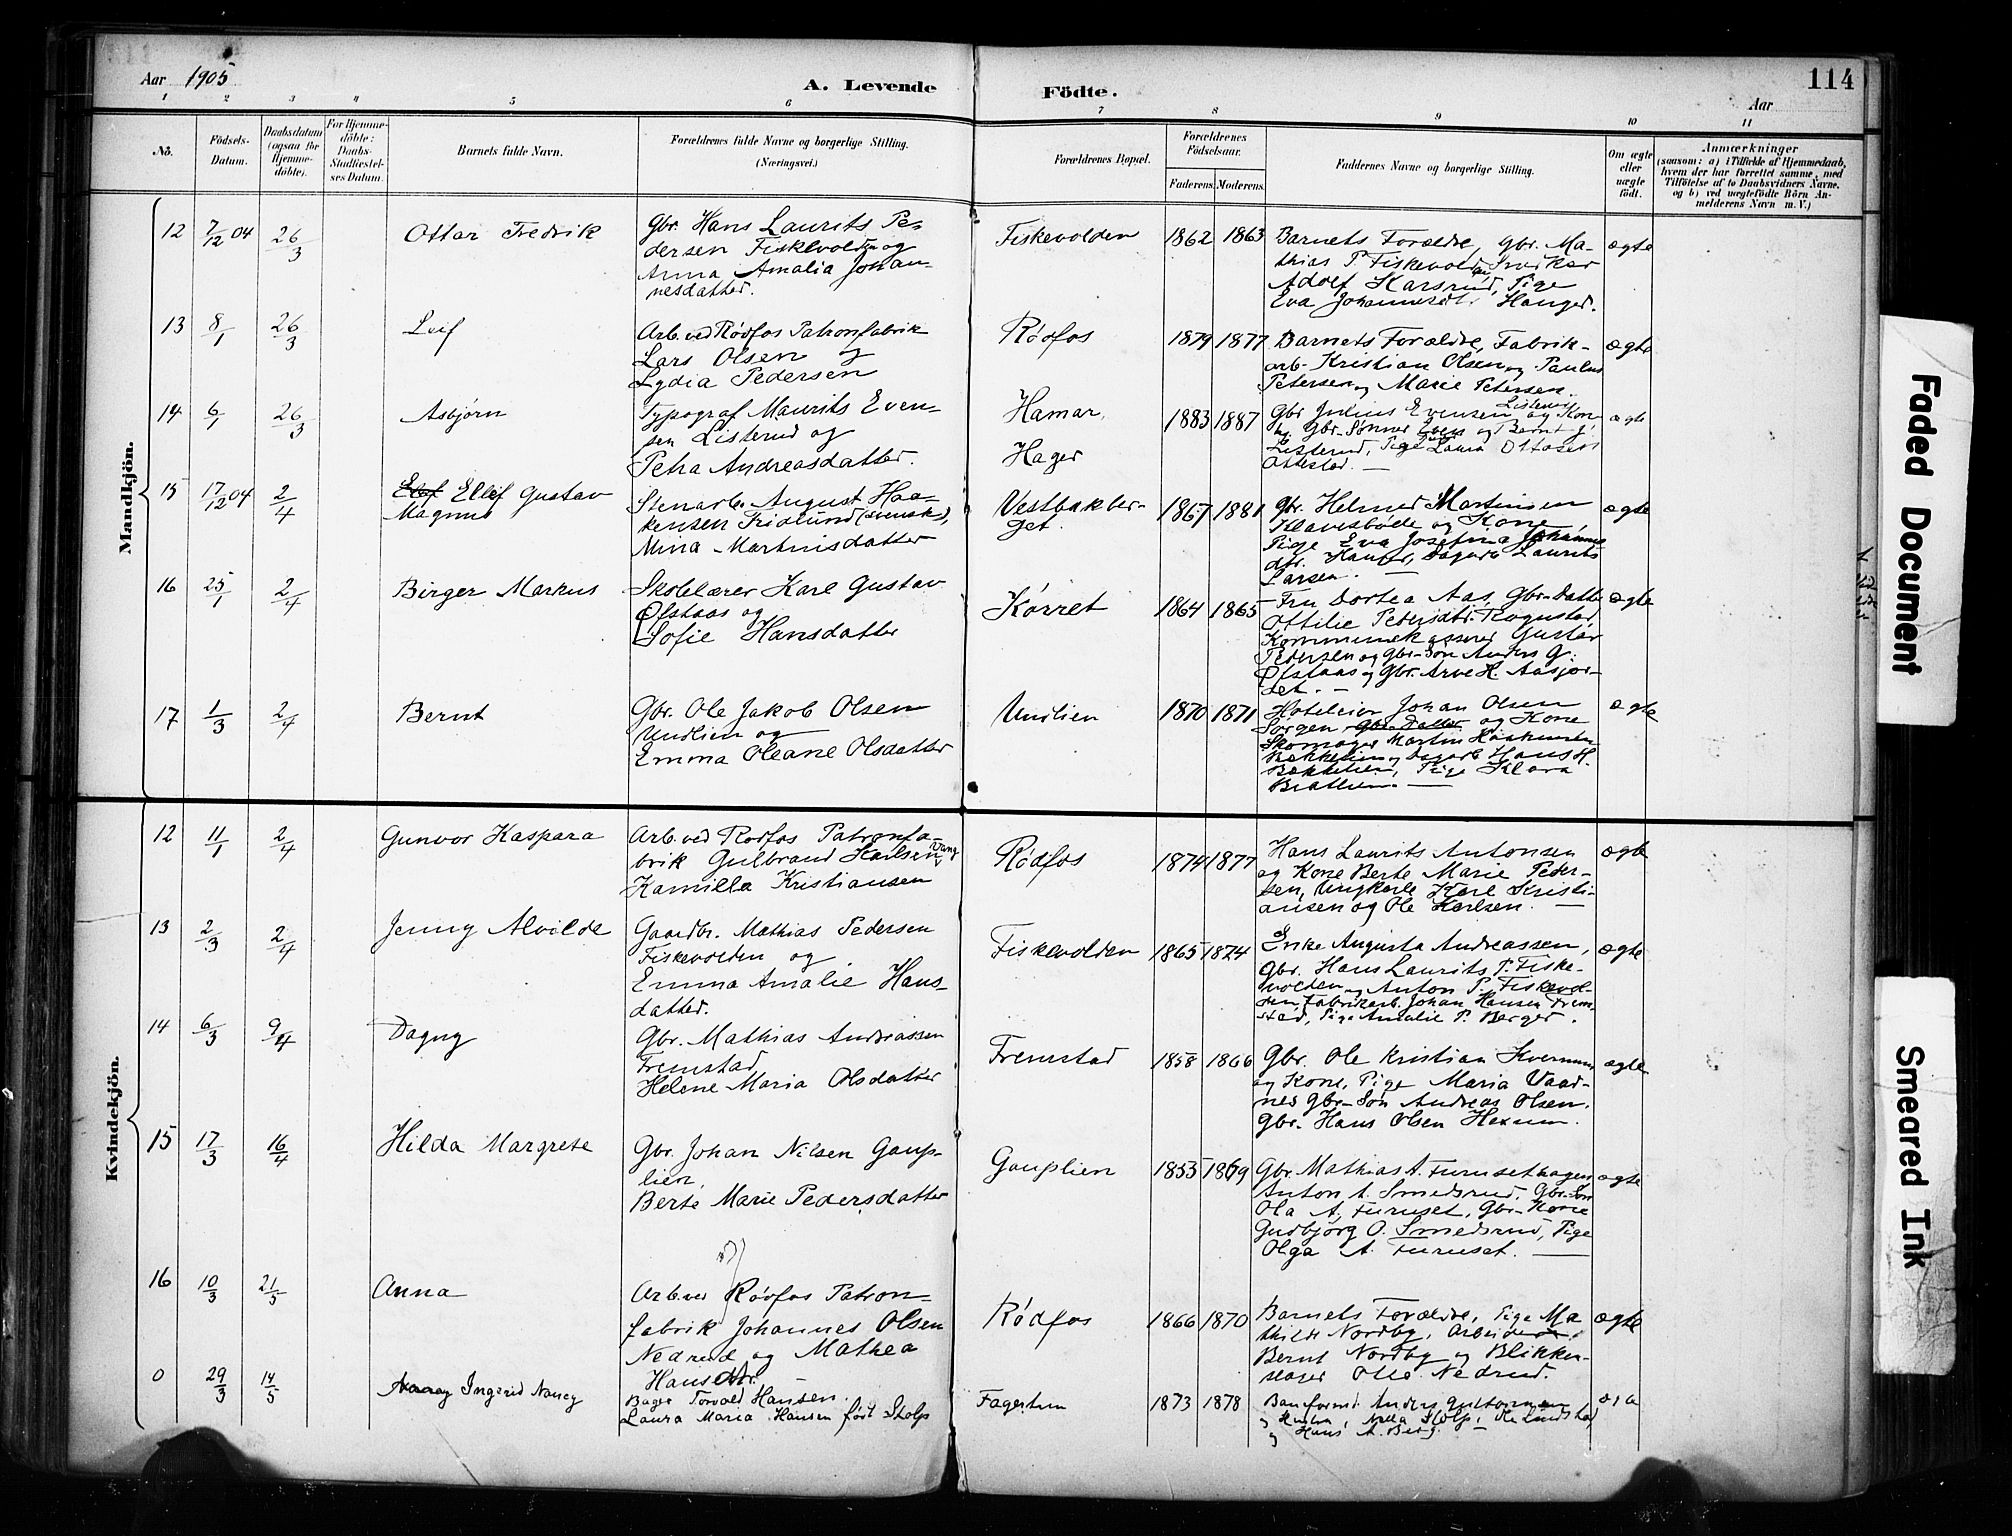 Aar 1905
A. Levende Födte.
114
Aar
1 2 3 4 5 6 7 8 9 10 11
No.
Födsels-Datum.
Daabsdatum (ogsaa for Hjemmedöbte).
For Hjemmedöbte: Daabs-Stadfæstelses Datum.
Barnets fulde Navn.
Forældrenes fulde Navne og borgerlige Stilling. (Næringsvei.)
Forældrenes Bopæl.
Forældrenes Födselsaar.
Faderens. Moderens.
Faddernes Navne og borgerlige Stilling.
Om ægte eller uægte født.
Anmærkninger
(saasom: a) i Tilfælde af Hjemmedaab,
hvem der har forrettet samme, med
Tilföielse af to Daabsvidners Navne.
og b) ved uægtefödte Börn An-
melderens Navn m. V.)
Mandkjön.
12 7/12 04 26/3 Ottar Fredrik
Gbr. Hans Laurits Pe-
dersen Fiskevolden og
Anna Amalia Johan-
nesdatter.
Fiskevolden 1862 1863
Barnets Forældre, Gbr. Ma-
thias P. Fiskevolden,
Adolf Karsrud, Pige
Eva Johannesdtr. Hanger.
ægte
13 8/1 26/3 Leif
Arb. ved Rødfos Patronfabrik
Lars Olsen og
Lydia Pedersen
Rødfos 1879 1877
Barnets Forældre, Fabrik-
arb. Kristian Olsen og Paulus
Petersen og Marie Petersen.
ægte
14 6/1 26/3 Asbjørn
Typograf Maurits Even-
sen Listerud og
Petra Andreasdatter.
Hamar,
Hager
1883 1887
Gbr Julius Evensen Listerud og Kone
og Gbr. Sønner Even og Bernt J.
Listerud, Pige Laura Ottosen
Ottestad. —
ægte
15 17/12 04 2/4 Elef Gustav
Magnus
Stenarb. August Haa-
kensen Fridlund (svensk),
Mina Martinisdatter
Vestbakber-
get.
1867 1881
Gbr. Helmer Martinsen
og Kone,
Pige Eva Josefina Johannes
dtr. Hanger, Dagarb. Laurits
Larsen. —
ægte
16 25/1 2/4 Birger Markus
Skolelærer Karl Gustav
Øfstaas og
Sofie Hansdatter
Kørret 1864 1865
Fru Dortea Aas, Gbr-Datter
Ottilie Pedersdtr. Rogustad,
Kommunekasserer Gustav
Pedersen og Gbr-Søn Anders G.
Øfstaas og Gbr. Arve H. Aasjor-
det. —
ægte
17 1/3 2/4 Bernt
Gbr. Ole Jakob Olsen
Undlien og
Emma Oleane Olsdatter
Undlien 1870 1871
Hoteleier Johan Olsen
Sorgen Gbr. Datter og Kone
Skomager Martin Haakensen
Bækkelien og Dagarb Hans H.
Bækkelien, Pige Klara
Bratlien. —
ægte
Kvindekjön.
12 11/1 2/4 Gunvor Kaspara
Arb. ved Rødfos Patronfa-
brik Gulbrand Karlsen Vang
Kamilla Kristiansen
Rødfos 1874 1877
Hans Laurits Antonsen
og Kone Berte Marie Peder-
sen, Ungkarle Karl Kristi-
ansen og Ole Karlsen. —
ægte
13 2/3 2/4 Jenny Alvilde
Gaardbr. Mathias Pedersen
Fiskevolden og
Emma Amalie Hans-
datter.
Fiskevolden 1865 1874
Enke Augusta Andreassen,
Gbr. Hans Laurits P. Fiske-
volden og Anton P. Fiskevol-
den, Fabrikarb. Johan Hansen Frem-
stad, Pige Amalie P. Berger.
ægte
14 6/3 9/4 Dagny
Gbr. Mathias Andreassen
Fremstad,
Helene Maria Olsdatter
Fremstad 1858 1866
Gbr. Ole Kristian Kvernum
og Kone, Pige Maria Vaad-
nes Gbr-Søn Andreas Olsen.
Gbr. Hans Olsen Hexum.
ægte
15 17/3 16/4 Hilda Margrete
Gbr. Johan Nilsen Gaup-
lien,
Berte Marie Pedersdatter
Gauplien 1853 1869
Gbr. Mathias A. Furusethagen
Anton A. Smedsrud, Gbr-Søn
Ola A. Furuset, Gbr-Kone
Gudbjørg O. Smedsrud, Pige
Olga A. Furuset. —
ægte
16 10/3 21/5 Anna
Arb. ved Rødfos Patron-
fabrik Johannes Olsen
Nedrud og Mathea
Hansdtr.
Rødfos 1866 1870
Barnets Forældre, Pige Ma
thilde Nordby, Arbeider
Bernt Nordby og Blikken-
slager Otto Nedrud.
ægte
0 29/3 14/5 Nancy Ingerid Nancy
Bager Torvald Hansen.
Laura Maria Hansen født Skolp
Fagertun 1873 1878
Banformd. Anders
og Hustru, Nella Skolp, Ole Lundstad
og Hans A. Berg.
Faded Document
Smeared Ink